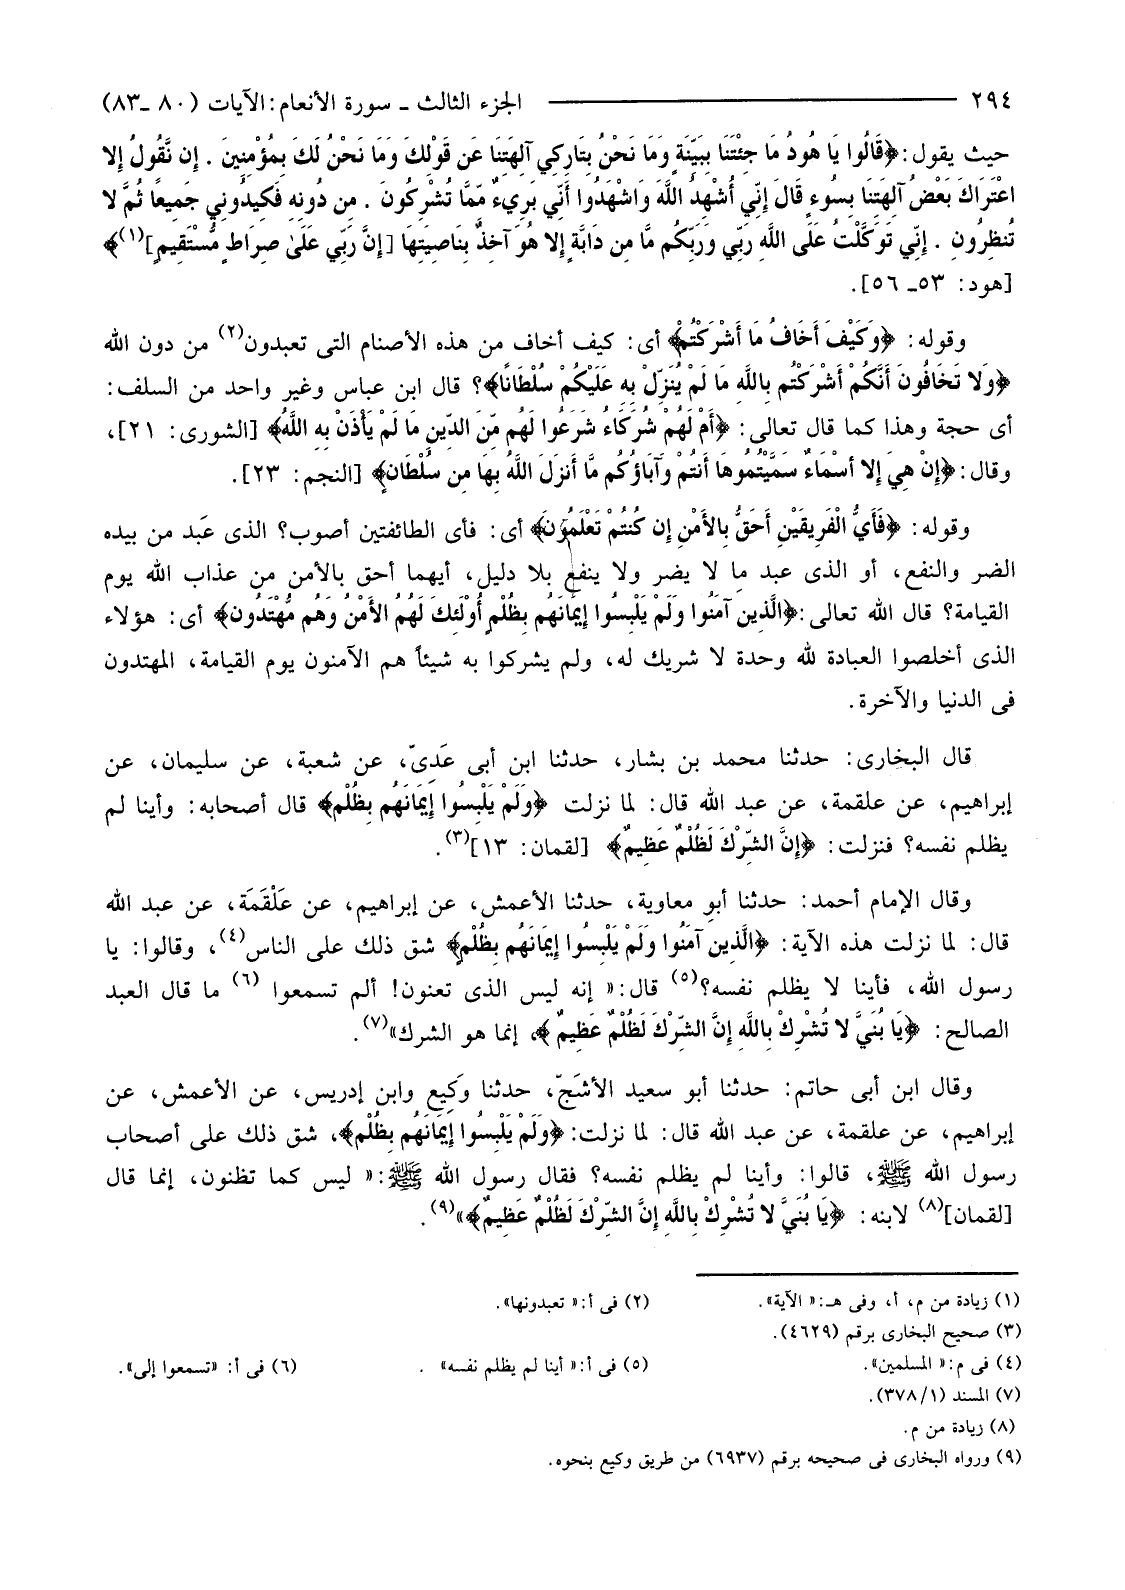 ٢٩٤ ــــــــ الجزء الثالث ـ سورة الأنعام: الآيات (٨٠ ـ٨٣)
حيث يقول: ﴿قَالُوا يَا هُودُ مَا جِئْتَنَا بِبَيِّنَةٍ وَمَا نَحْنُ بِتَارِكِي آلِهَتِنَا عَن قَوْلِكَ وَمَا نَحْنُ لَكَ بِمُؤْمِنِينَ . إِن نَّقُولُ إِلا
اعْتَرَاكَ بَعْضُ آلِهَتِنَا بِسُوءٍ قَالَ إِنِّي أُشْهِدُ اللَّهَ وَاشْهَدُوا أَنِّي بَرِيءٌ مِّمَّا تُشْرِكُونَ . مِن دُونِهِ فَكِيدُونِي جَمِيعًا ثُمَّ لا
تُنظِرُونِ . إِنِّي تَوَكَّلْتُ عَلَى اللَّهِ رَبِّي وَرَبِّكُم مَّا مِن دَابَّةٍ إِلا هُوَ آخِذٌ بِنَاصِيَتِهَا [إِنَّ رَبِّي عَلَىٰ صِرَاطٍ مُّسْتَقِيمٍ](١)﴾
[هود: ٥٣ـ ٥٦].
وقوله: ﴿وَكَيْفَ أَخَافُ مَا أَشْرَكْتُمْ﴾ أى: كيف أخاف من هذه الأصنام التى تعبدون(٢) من دون الله
﴿وَلا تَخَافُونَ أَنَّكُمْ أَشْرَكْتُم بِاللَّهِ مَا لَمْ يُنَزِّلْ بِهِ عَلَيْكُمْ سُلْطَانًا﴾؟ قال ابن عباس وغير واحد من السلف:
أى حجة وهذا كما قال تعالى: ﴿أَمْ لَهُمْ شُرَكَاءُ شَرَعُوا لَهُم مِّنَ الدِّينِ مَا لَمْ يَأْذَنْ بِهِ اللَّهُ﴾ [الشورى: ٢١]،
وقال: ﴿إِنْ هِيَ إِلا أَسْمَاءٌ سَمَّيْتُمُوهَا أَنتُمْ وَآبَاؤُكُم مَّا أَنزَلَ اللَّهُ بِهَا مِن سُلْطَانٍ﴾ [النجم: ٢٣].
وقوله: ﴿فَأَيُّ الْفَرِيقَيْنِ أَحَقُّ بِالأَمْنِ إِن كُنتُمْ تَعْلَمُونَ﴾ أى: فأى الطائفتين أصوب؟ الذى عَبد من بيده
الضر والنفع، أو الذى عبد ما لا يضر ولا ينفع بلا دليل، أيهما أحق بالأمن من عذاب الله يوم
القيامة؟ قال الله تعالى: ﴿الَّذِينَ آمَنُوا وَلَمْ يَلْبِسُوا إِيمَانَهُم بِظُلْمٍ أُوْلَئِكَ لَهُمُ الأَمْنُ وَهُم مُّهْتَدُون﴾ أى: هؤلاء
الذى أخلصوا العبادة لله وحدة لا شريك له، ولم يشركوا به شيئاً هم الآمنون يوم القيامة، المهتدون
فى الدنيا والآخرة.
قال البخارى: حدثنا محمد بن بشار، حدثنا ابن أبى عَدِىّ، عن شعبة، عن سليمان، عن
إبراهيم، عن علقمة، عن عبد الله قال: لما نزلت ﴿وَلَمْ يَلْبِسُوا إِيمَانَهُم بِظُلْمٍ﴾ قال أصحابه: وأينا لم
يظلم نفسه؟ فنزلت: ﴿إِنَّ الشِّرْكَ لَظُلْمٌ عَظِيمٌ﴾ [لقمان: ١٣](٣).
وقال الإمام أحمد: حدثنا أبو معاوية، حدثنا الأعمش، عن إبراهيم، عن عَلْقَمَة، عن عبد الله
قال: لما نزلت هذه الآية: ﴿الَّذِينَ آمَنُوا وَلَمْ يَلْبِسُوا إِيمَانَهُم بِظُلْمٍ﴾ شق ذلك على الناس(٤)، وقالوا: يا
رسول الله، فأينا لا يظلم نفسه؟(٥) قال:« إنه ليس الذى تعنون! ألم تسمعوا (٦) ما قال العبد
الصالح: ﴿يَا بُنَيَّ لا تُشْرِكْ بِاللَّهِ إِنَّ الشِّرْكَ لَظُلْمٌ عَظِيمٌ ﴾، إنما هو الشرك»(٧).
وقال ابن أبى حاتم: حدثنا أبو سعيد الأشَجّ، حدثنا وَكِيع وابن إدريس، عن الأعمش، عن
إبراهيم، عن علقمة، عن عبد الله قال: لما نزلت: ﴿وَلَمْ يَلْبِسُوا إِيمَانَهُم بِظُلْمٍ﴾، شق ذلك على أصحاب
رسول الله ﷺ، قالوا: وأينا لم يظلم نفسه؟ فقال رسول الله ﷺ:« ليس كما تظنون، إنما قال
[لقمان](٨) لابنه: ﴿يَا بُنَيَّ لا تُشْرِكْ بِاللَّهِ إِنَّ الشِّرْكَ لَظُلْمٌ عَظِيمٌ﴾»(٩).
(١) زيادة من م، أ، وفى هـ:« الآية». (٢) فى أ:« تعبدونها».
(٣) صحيح البخارى برقم (٤٦٢٩).
(٤) فى م:« المسلمين». (٥) فى أ:« أينا لم يظلم نفسه» . (٦) فى أ: «تسمعوا إلى».
(٧) المسند (٣٧٨/١).
(٨) زيادة من م.
(٩) ورواه البخارى فى صحيحه برقم (٦٩٣٧) من طريق وكيع بنحوه.